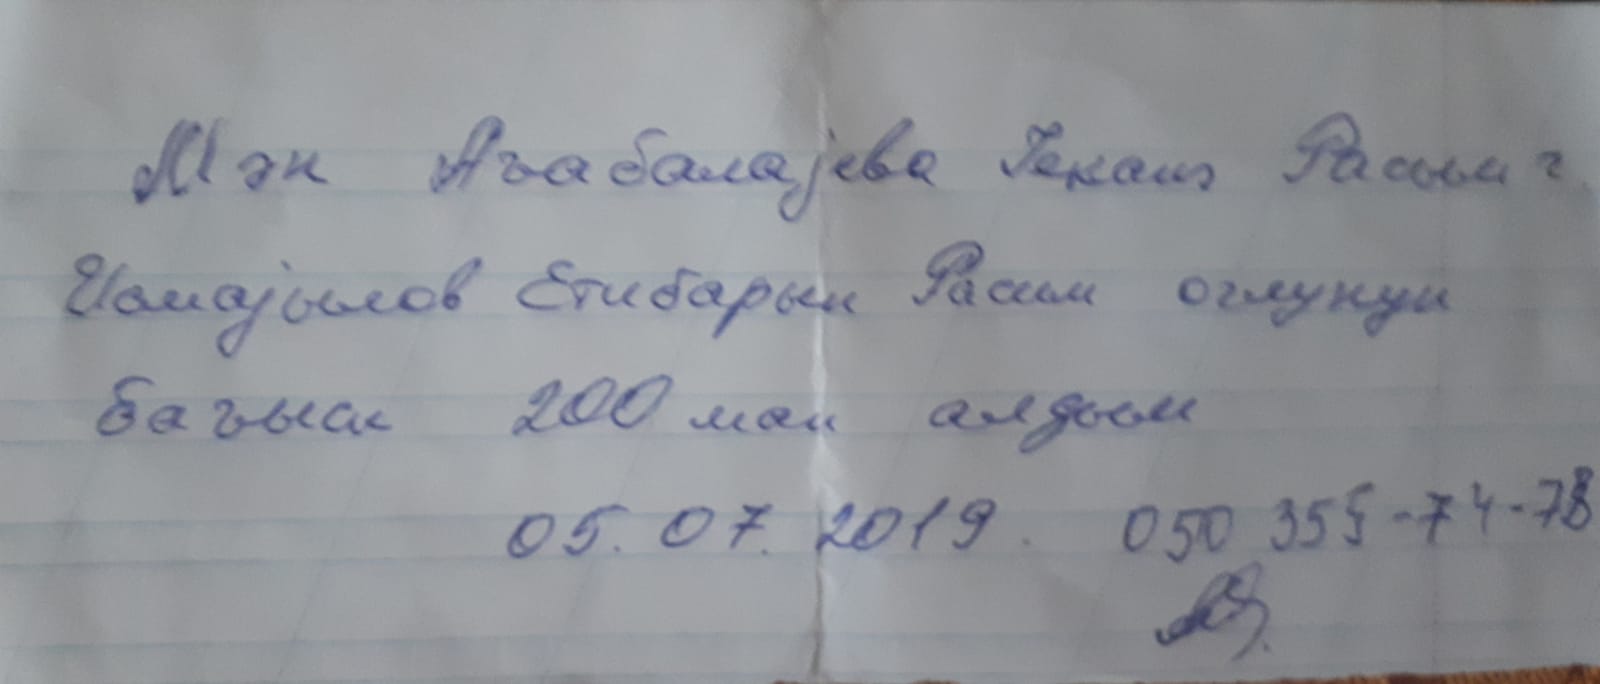 Мән Ағабалајева Расим г.
Исмајылов Етибарын Расим оглунун
багысы 200 ман алдым
05.07.2019. 050 355-74-78